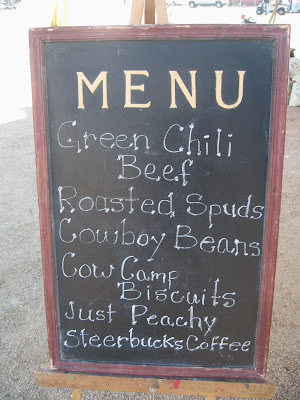 MENU
Green Chili
Beef
Roasted Spuds
Cowboy Beans
Cow Camp
Biscuits
Just Peachy
Steerbucks Coffee